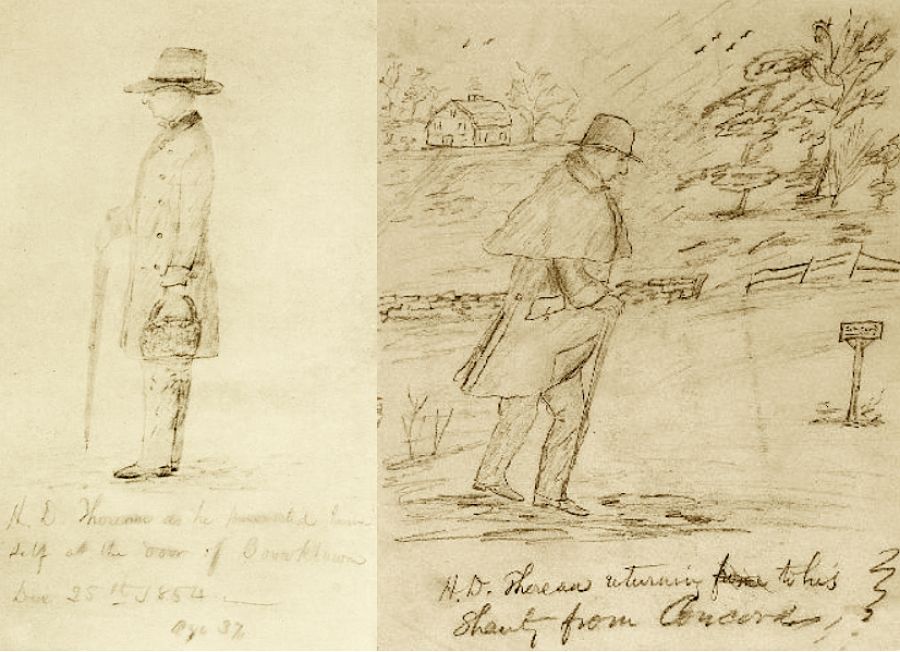 H. D. Thoreau as he presented him
self at the door of Brooklawn
Dec 25th 1854
Age 37
H. D. Thoreau returning to his
Shanty from Concord